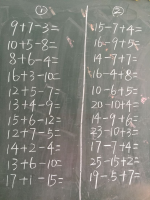 ①
9+7-3=
10+5-8=
8+6-4=
16+3-10=
12+5-7=
13+4-9=
15+6-12=
12+7-5=
14+2-4=
13+6-10=
17+1-15=
②
15-7+4=
16-9+5=
14-7+7=
16-4+8=
10-6+5=
20-10+4=
14-9+6=
23-10+3=
17-7+4=
25-15+2=
19-5+7=